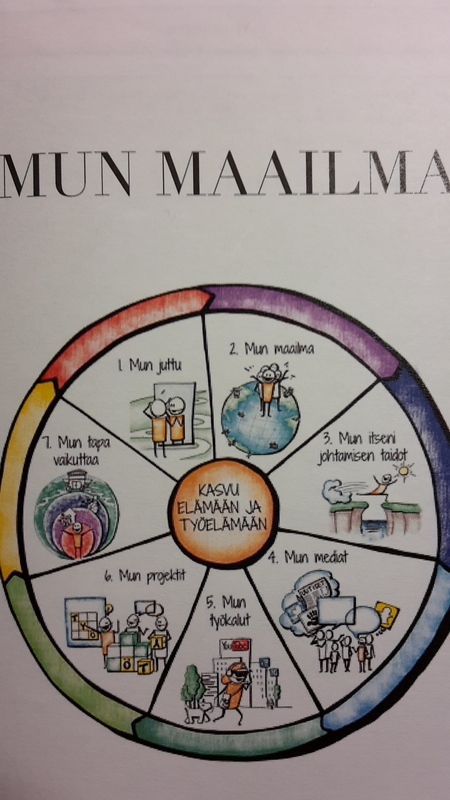 MUN MAAILMA
1. Mun juttu
2. Mun maailma
3. Mun itseni
johtamisen taidot
4. Mun mediat
5. Mun
työkalut
6. Mun projektit
7. Mun tapa
vaikuttaa
KASVU
ELÄMÄÄN JA
TYÖELÄMÄÄN
You